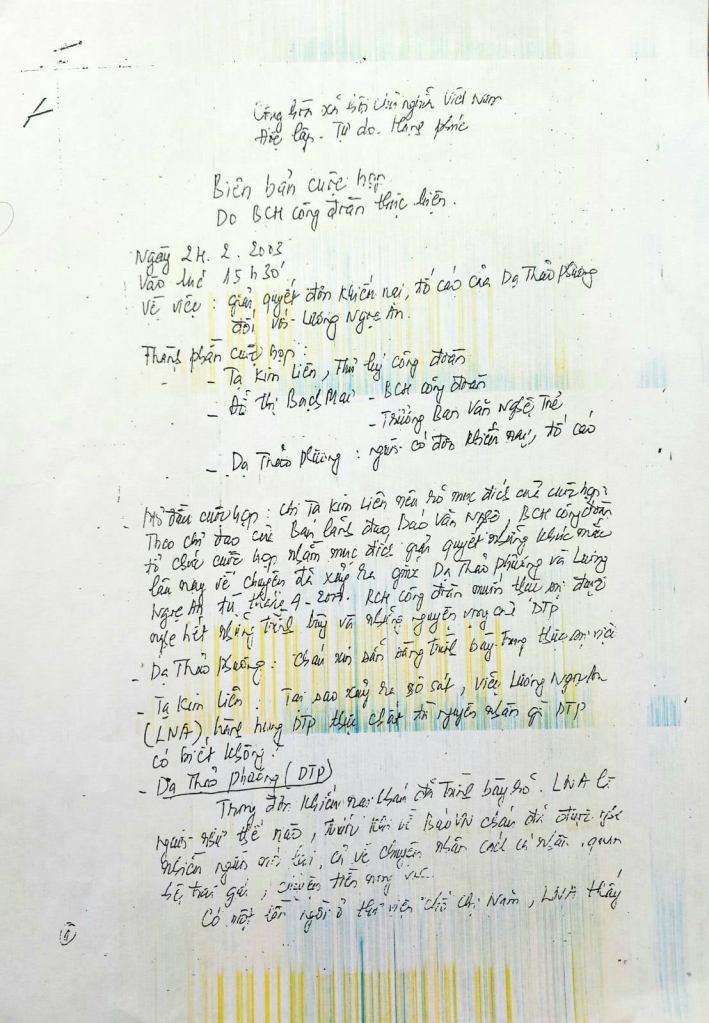 Cộng hòa xã hội chủ nghĩa Việt Nam
Độc lập - Tự do - Hạnh phúc
Biên bản cuộc họp
Do BCH công đoàn thực hiện.
Ngày 24. 2. 2003
Vào lúc 15h30'
Về việc: giải quyết đơn khiếu nại, tố cáo của Dạ Thảo Phương
đối với Lương Ngọc An.
Thành phần cuộc họp:
- Tạ Kim Liên, Thư ký công đoàn
- Đỗ Thị Bạch Mai - BCH công đoàn
- Trưởng Ban Văn Nghệ Trẻ
- Dạ Thảo Phương: người có đơn khiếu nại, tố cáo
- Mở đầu cuộc họp: chị Tạ Kim Liên nêu rõ mục đích của cuộc họp:
Theo chỉ đạo của Ban lãnh đạo Báo Văn Nghệ, BCH công đoàn
tổ chức cuộc họp nhằm mục đích giải quyết những khúc mắc
lâu nay về chuyện đã xảy ra giữa Dạ Thảo Phương và Lương
Ngọc An từ tháng 4 - BCH công đoàn muốn được
nghe hết những trình bày và những nguyện vọng của DTP
- Dạ Thảo Phương: Cháu xin sẵn sàng trình bày trung thực mọi việc
- Tạ Kim Liên: Tại sao xảy ra xô xát, việc Lương Ngọc An
(LNA) hành hung DTP thực chất từ nguyên nhân gì DTP
có biết không?
- Dạ Thảo Phương (DTP)
Trong đơn khiếu nại cháu đã trình bày rõ. LNA là
người như thế nào, trước khi về Báo VN cháu đã được
nhiều người nói tới, cả về chuyện nhân cách cá nhân, quan
hệ trai gái, chuyện tiền nong
Có một lần ngồi ở thư viện chỗ chị Nam, LNA thấy